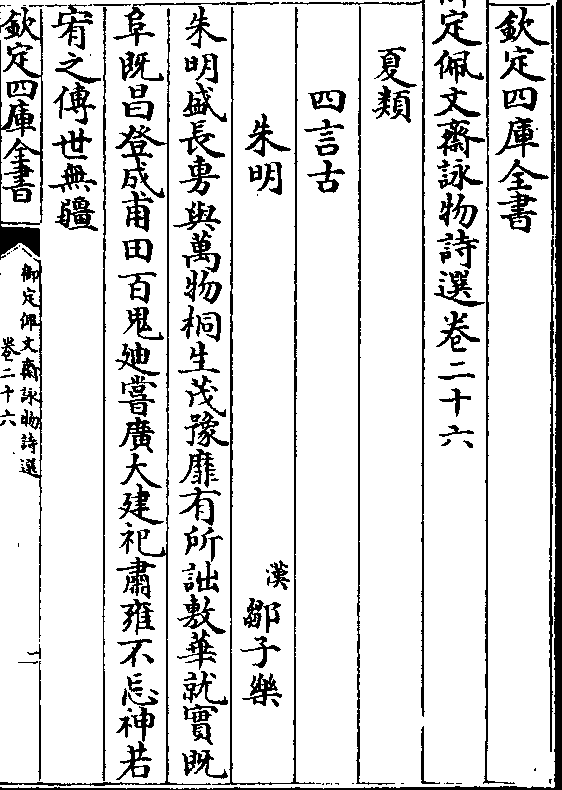 欽定四庫全書
御定佩文齋詠物詩選卷二十六
夏類
四言古
朱明
漢鄒子樂
朱明盛長旉與萬物桐生茂豫靡有所詘敷華就實既
阜既昌登成甫田百鬼廸嘗廣大建祀肅雍不忘神若
宥之傳世無疆
欽定四庫全書
御定佩文齋詠物詩選
卷二十六
二